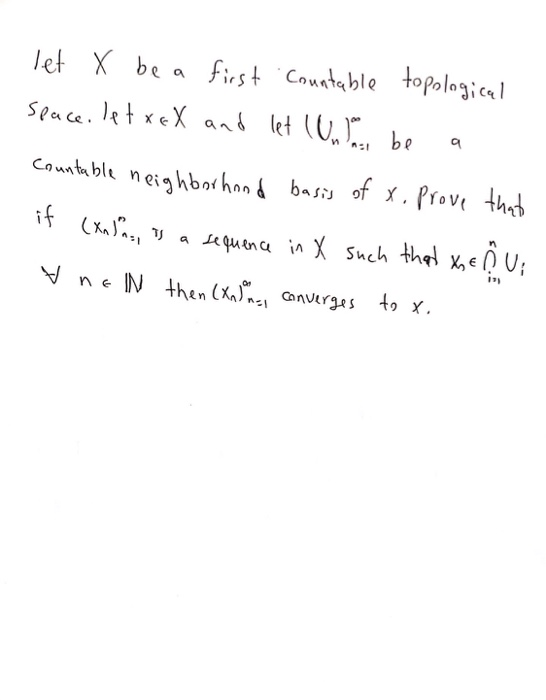 let X be a first countable topological
space. let x∈X and let (Uₙ)ₙ₌₁^∞ be a
countable neighborhood basis of x. prove that
if (xₙ)ⁿₙ₌₁ is a sequence in X such that xₙ ∈ ⋂ᵢ₌₁ⁿ Uᵢ
∀ n ∈ ℕ then (xₙ)ₙ₌₁^∞ converges to x.